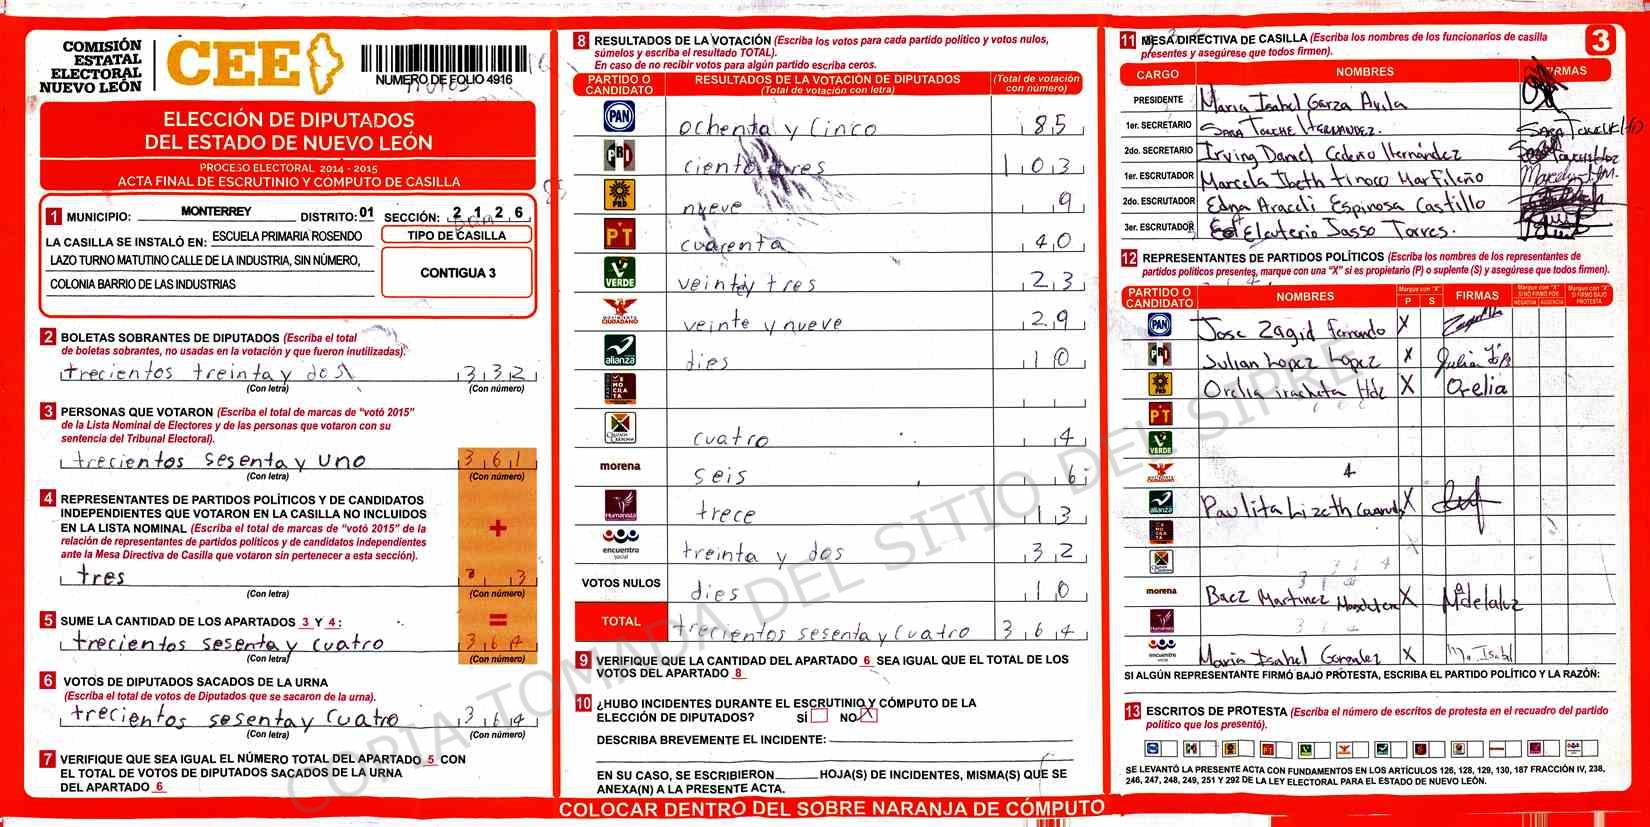 COMISIÓN
ESTATAL
ELECTORAL
NUEVO LEÓN
CEE
NUMERO DE FOLIO 4916
ELECCIÓN DE DIPUTADOS
DEL ESTADO DE NUEVO LEÓN
PROCESO ELECTORAL 2014 - 2015
ACTA FINAL DE ESCRUTINIO Y CÓMPUTO DE CASILLA
1 MUNICIPIO: MONTERREY DISTRITO: 01 SECCIÓN: 2 1 2 6
LA CASILLA SE INSTALÓ EN: ESCUELA PRIMARIA ROSENDO
LAZO TURNO MATUTINO CALLE DE LA INDUSTRIA, SIN NÚMERO,
COLONIA BARRIO DE LAS INDUSTRIAS
TIPO DE CASILLA
CONTIGUA 3
2 BOLETAS SOBRANTES DE DIPUTADOS (Escriba el total
de boletas sobrantes, no usadas en la votación y que fueron inutilizadas).
trecientos treinta y dos 3 3 2
(Con letra) (Con número)
3 PERSONAS QUE VOTARON (Escriba el total de marcas de "votó 2015"
de la Lista Nominal de Electores y de las personas que votaron con su
sentencia del Tribunal Electoral).
trecientos sesenta y uno 3 6 1
(Con letra) (Con número)
4 REPRESENTANTES DE PARTIDOS POLÍTICOS Y DE CANDIDATOS
INDEPENDIENTES QUE VOTARON EN LA CASILLA NO INCLUIDOS
EN LA LISTA NOMINAL (Escriba el total de marcas de "votó 2015" de la
relación de representantes de partidos políticos y de candidatos independientes
ante la Mesa Directiva de Casilla que votaron sin pertenecer a esta sección).
+
tres 3
(Con letra) (Con número)
=
5 SUME LA CANTIDAD DE LOS APARTADOS 3 Y 4:
trecientos sesenta y cuatro 3 6 4
(Con letra) (Con número)
6 VOTOS DE DIPUTADOS SACADOS DE LA URNA
(Escriba el total de votos de Diputados que se sacaron de la urna).
trecientos sesenta y cuatro 3 6 4
(Con letra) (Con número)
7 VERIFIQUE QUE SEA IGUAL EL NÚMERO TOTAL DEL APARTADO 5 CON
EL TOTAL DE VOTOS DE DIPUTADOS SACADOS DE LA URNA
DEL APARTADO 6
8 RESULTADOS DE LA VOTACIÓN (Escriba los votos para cada partido político y votos nulos,
súmelos y escriba el resultado TOTAL).
En caso de no recibir votos para algún partido escriba ceros.
PARTIDO O CANDIDATO RESULTADOS DE LA VOTACIÓN DE DIPUTADOS (Total de votación con letra) (Total de votación con número)
PAN ochenta y cinco 85
PRI ciento tres 103
PRD nueve 9
PT cuarenta 40
VERDE veinte y tres 23
MOVIMIENTO CIUDADANO veinte y nueve 29
alianza dies 10
DEMOCRATA
CRUZADA CIUDADANA cuatro 4
morena seis 6
Humanista trece 13
encuentro social treinta y dos 32
VOTOS NULOS dies 10
TOTAL trecientos sesenta y cuatro 364
9 VERIFIQUE QUE LA CANTIDAD DEL APARTADO 6 SEA IGUAL QUE EL TOTAL DE LOS
VOTOS DEL APARTADO 8
10 ¿HUBO INCIDENTES DURANTE EL ESCRUTINIO Y CÓMPUTO DE LA
ELECCIÓN DE DIPUTADOS? SÍ NO X
DESCRIBA BREVEMENTE EL INCIDENTE:
EN SU CASO, SE ESCRIBIERON HOJA(S) DE INCIDENTES, MISMA(S) QUE SE
ANEXA(N) A LA PRESENTE ACTA.
COLOCAR DENTRO DEL SOBRE NARANJA DE CÓMPUTO
11 MESA DIRECTIVA DE CASILLA (Escriba los nombres de los funcionarios de casilla
presentes y asegúrese que todos firmen).
3
CARGO NOMBRES FIRMAS
PRESIDENTE Maria Isabel Garza Avila
1er. SECRETARIO SARA TOUCHE HERNANDEZ.
2do. SECRETARIO Irving Daniel Cedeño Hernández
1er. ESCRUTADOR Marcela Ibeth tinoco Marfileño
2do. ESCRUTADOR Edna Araceli Espinosa Castillo
3er. ESCRUTADOR Eleuterio Jasso Torres.
12 REPRESENTANTES DE PARTIDOS POLÍTICOS (Escriba los nombres de los representantes de
partidos políticos presentes, marque con una "X" si es propietario (P) o suplente (S) y asegúrese que todos firmen).
PARTIDO O CANDIDATO NOMBRES Marque con "X" P S FIRMAS Marque con "X" SI NO FIRMÓ POR NEGATIVA AUSENCIA Marque con "X" SI FIRMÓ BAJO PROTESTA
PAN Jose Zagid Fernando X
PRI Julian Lopez Lopez X
PRD Orelia iracheta Hdz X Orelia
PT
VERDE
MOVIMIENTO CIUDADANO
alianza Paulita Lizeth X
morena Baez Martinez X
Humanista
encuentro social Maria Isabel Gonzalez X Ma. Isabel
SI ALGÚN REPRESENTANTE FIRMÓ BAJO PROTESTA, ESCRIBA EL PARTIDO POLÍTICO Y LA RAZÓN:
13 ESCRITOS DE PROTESTA (Escriba el número de escritos de protesta en el recuadro del partido
político que los presentó).
SE LEVANTÓ LA PRESENTE ACTA CON FUNDAMENTOS EN LOS ARTÍCULOS 126, 128, 129, 130, 187 FRACCIÓN IV, 238,
246, 247, 248, 249, 251 Y 292 DE LA LEY ELECTORAL PARA EL ESTADO DE NUEVO LEÓN.
COPIA TOMADA DEL SITIO DEL SIPRE